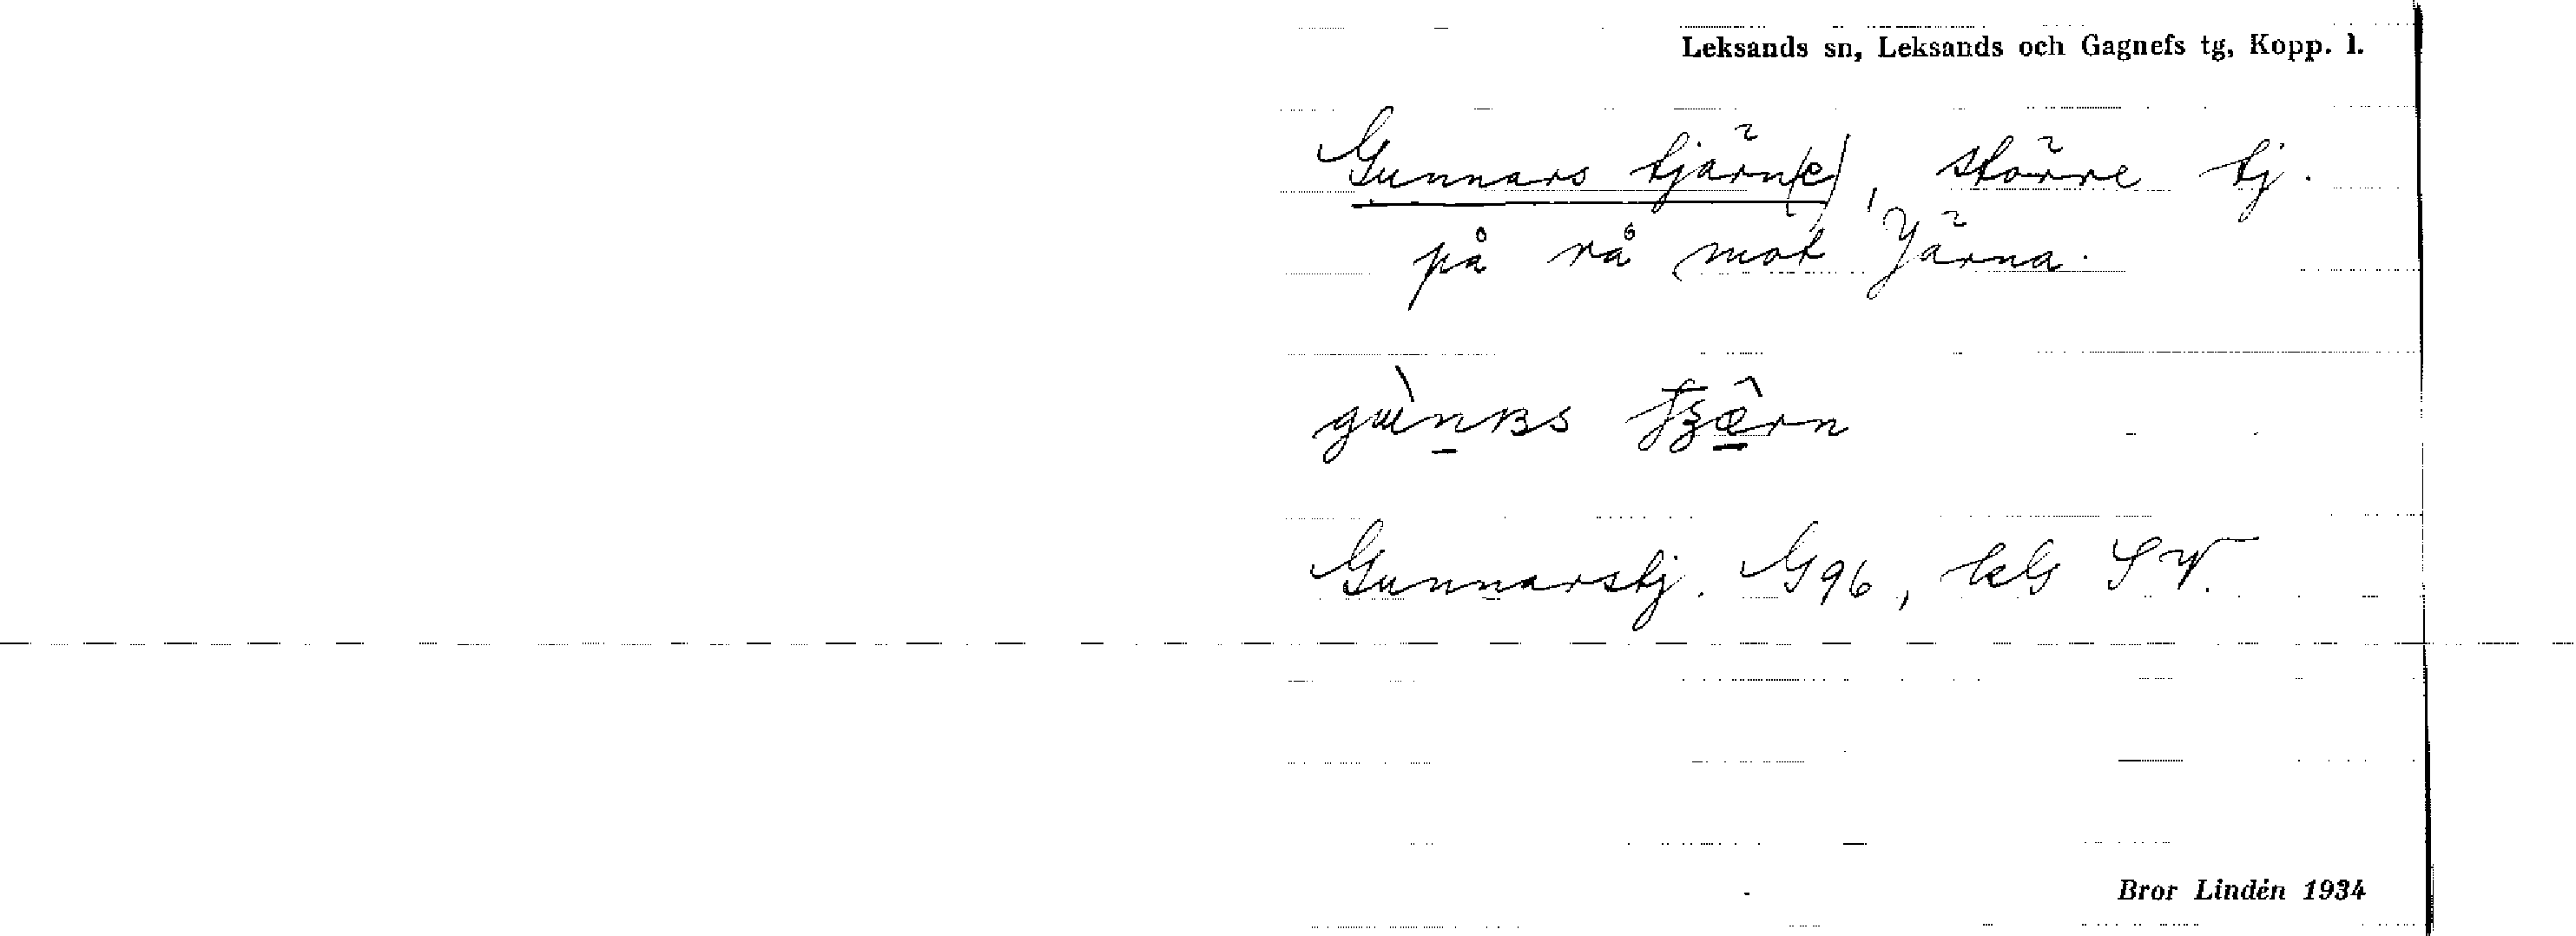 Leksands sn, Leksands och Gagnefs tg, Kopp. l.
Gunnars tjärn(e), större tj.
på rå mot Järna.
Gunnarstj. G96, kG SV.
Bror Lindén 1934